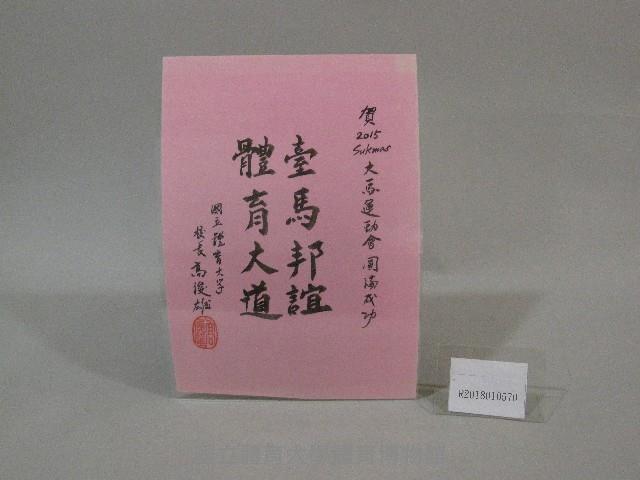 賀2015 Sukmas 大馬運動會圓滿成功
臺馬邦誼
體育大道
國立體育大學
校長高俊雄
R2018010570
國立體育大學體育博物館